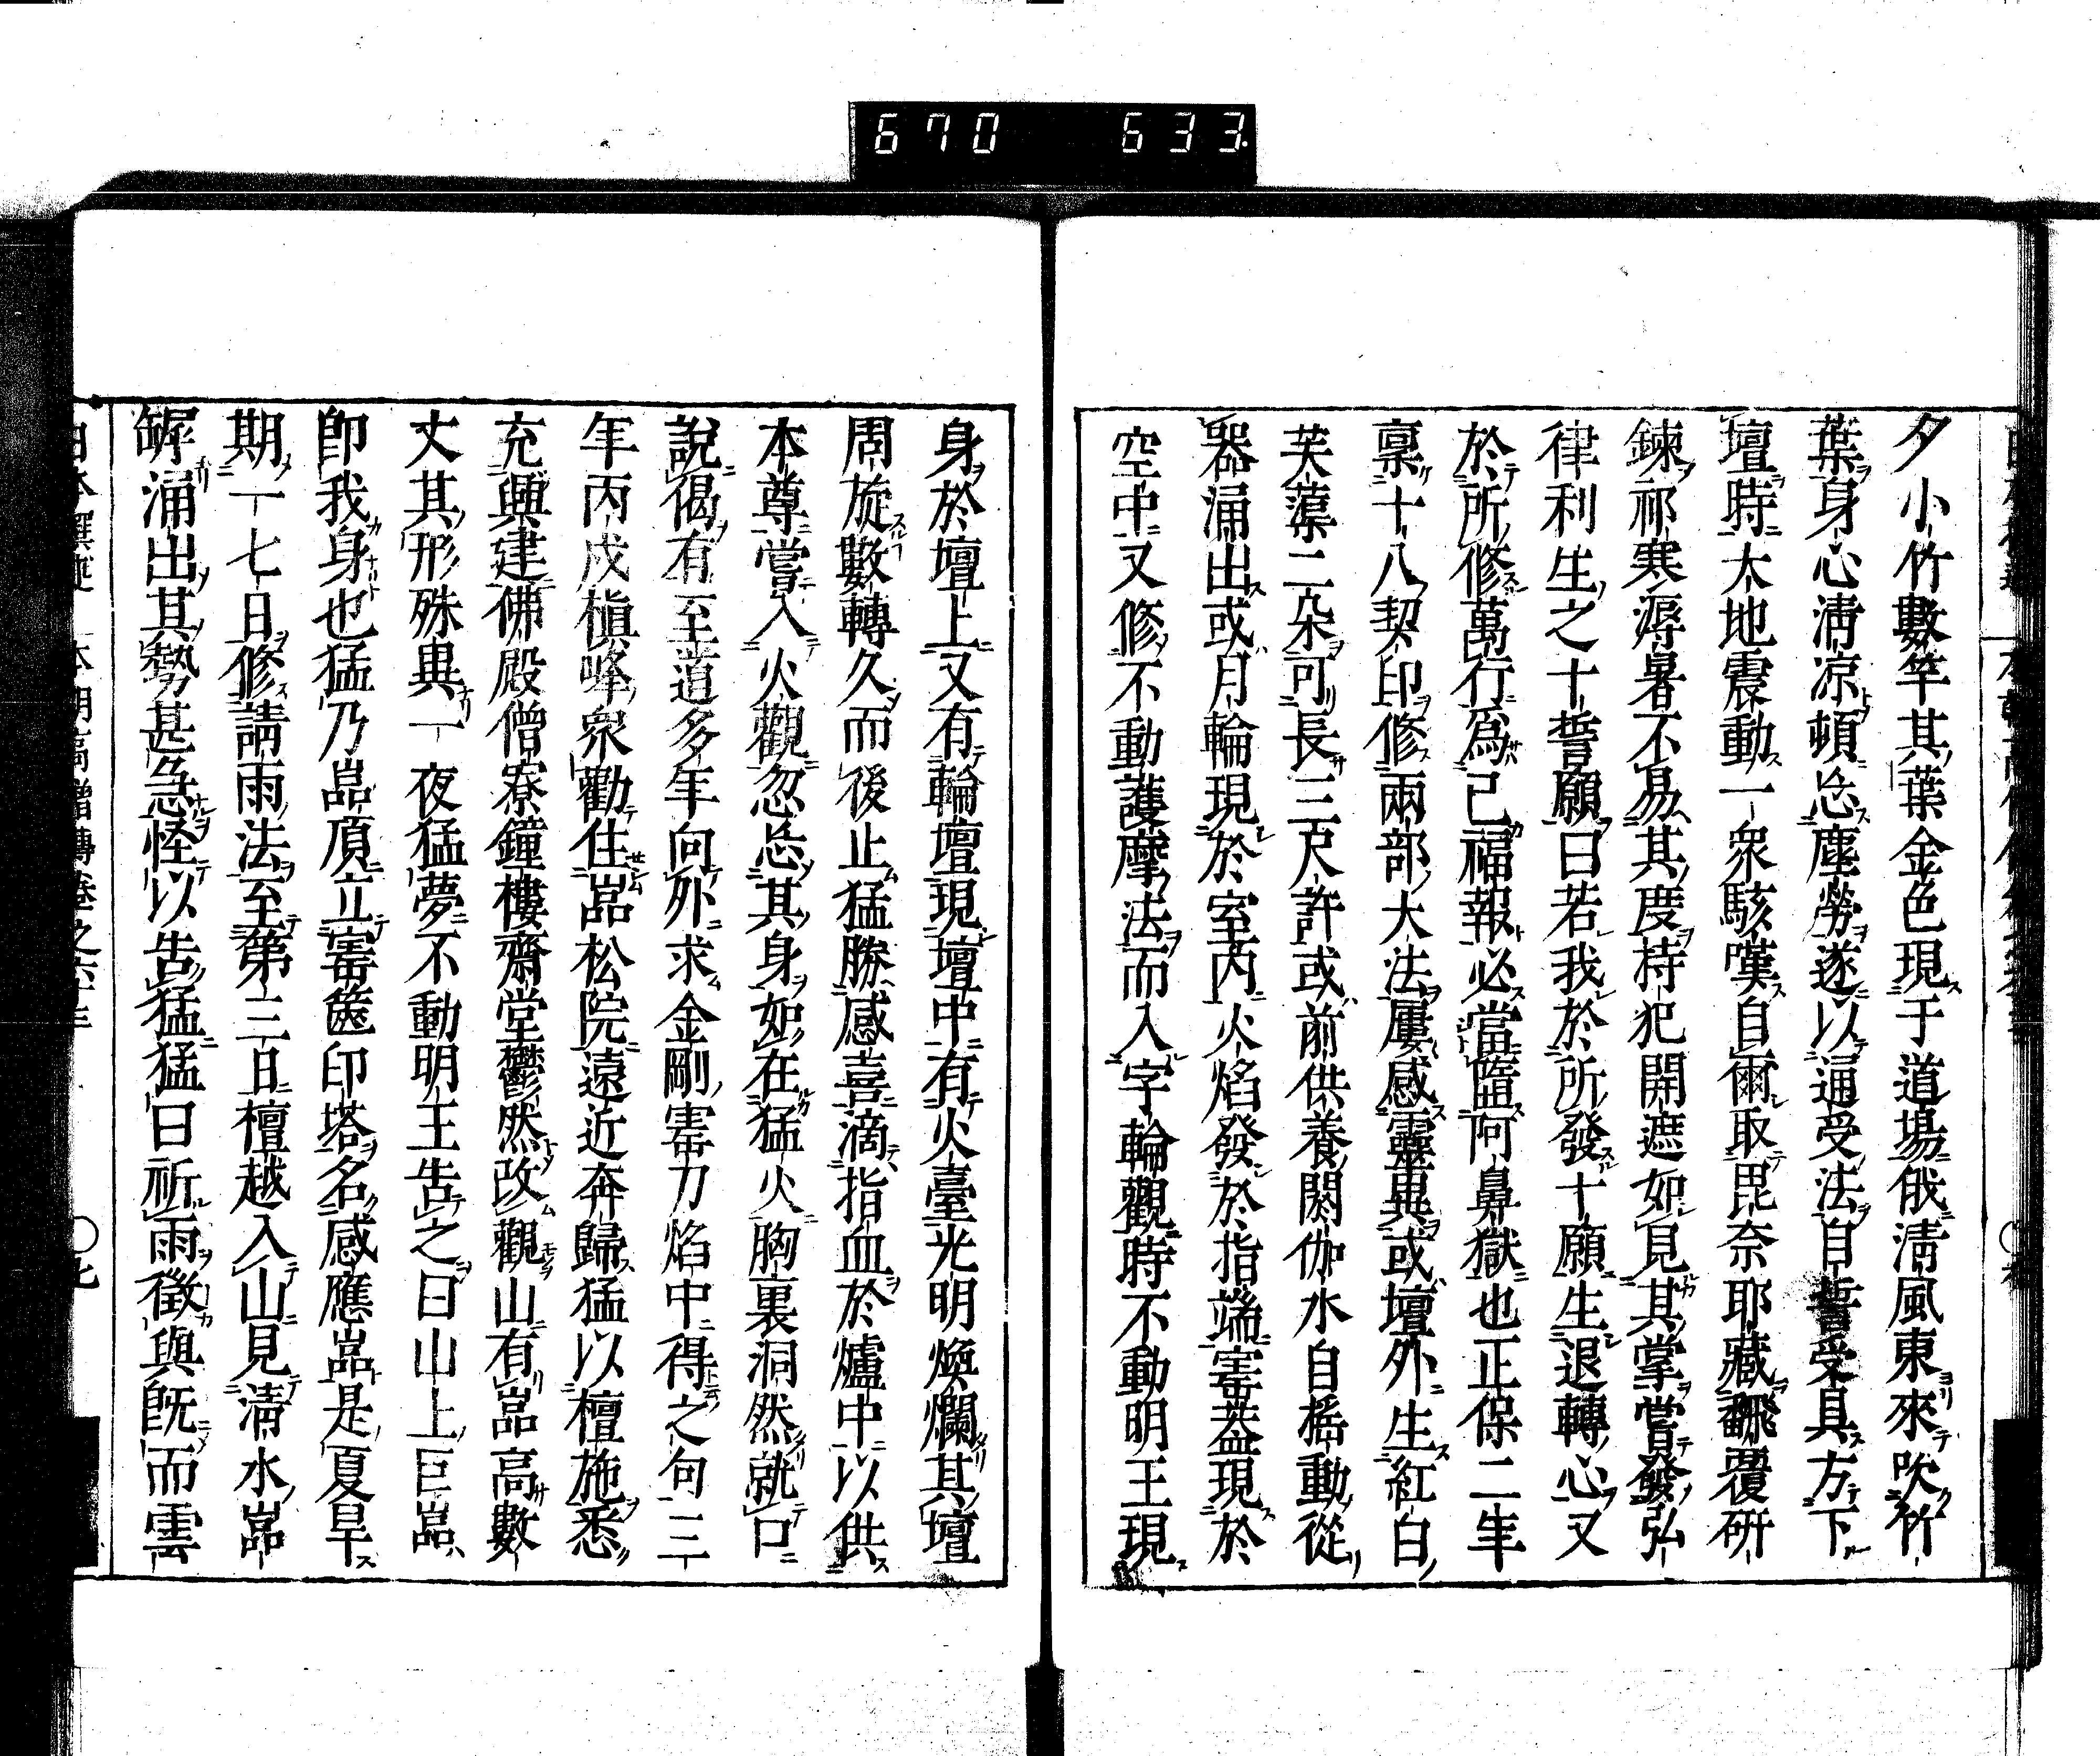 670 633
夕小竹數竿其葉金色現于道場俄淸風東來吹竹
葉身心淸凉頓忘塵勞遂以通受法自誓受具方下
壇時大地震動一衆駭嘆自爾取毘奈耶藏翻覆研
鍊祁寒溽暑不易其度持犯開遮如見其掌嘗發弘
律利生之十誓願曰若我於所發十願生退轉心又
於所修萬行爲己福報必當墮阿鼻獄也正保二年
稟十八契印修兩部大法屢感靈異或壇外生紅白
芙蕖二朶可長三尺許或前供養閼伽水自搖動從
器涌出或月輪現於室內火焰發於指端寶蓋現於
空中又修不動護摩法而入字輪觀時不動明王現
身於壇上又有輪壇現壇中有火臺光明煥爛其壇
周旋數轉久而後止猛勝感喜滴指血於爐中以供
本尊嘗入火觀忽忘其身如在猛火胸裏洞然就口
說偈有至道多年向外求金剛寶刀焰中得之句三
年丙戌槇峰衆勸住嵓松院遠近奔歸猛以檀施悉
充興建佛殿僧寮鐘樓齋堂鬱然改觀山有嵓高數
丈其形殊異一夜猛夢不動明王告之曰山上巨嵓
卽我身也猛乃嵓頂立寶篋印塔名感應嵓是夏旱
期一七日修請雨法至第三日檀越入山見淸水嵓
罅涌出其勢甚急怪以告猛猛曰祈雨徵與旣而雲
本朝高僧傳卷之六十三